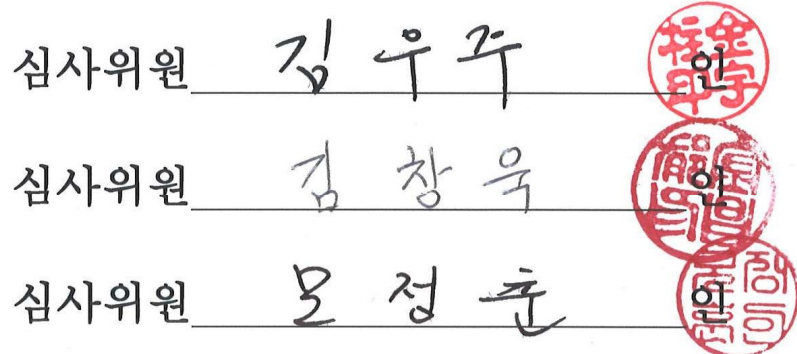 심사위원 김 우 주 인
심사위원 김 창 욱 인
심사위원 모 정 훈 인